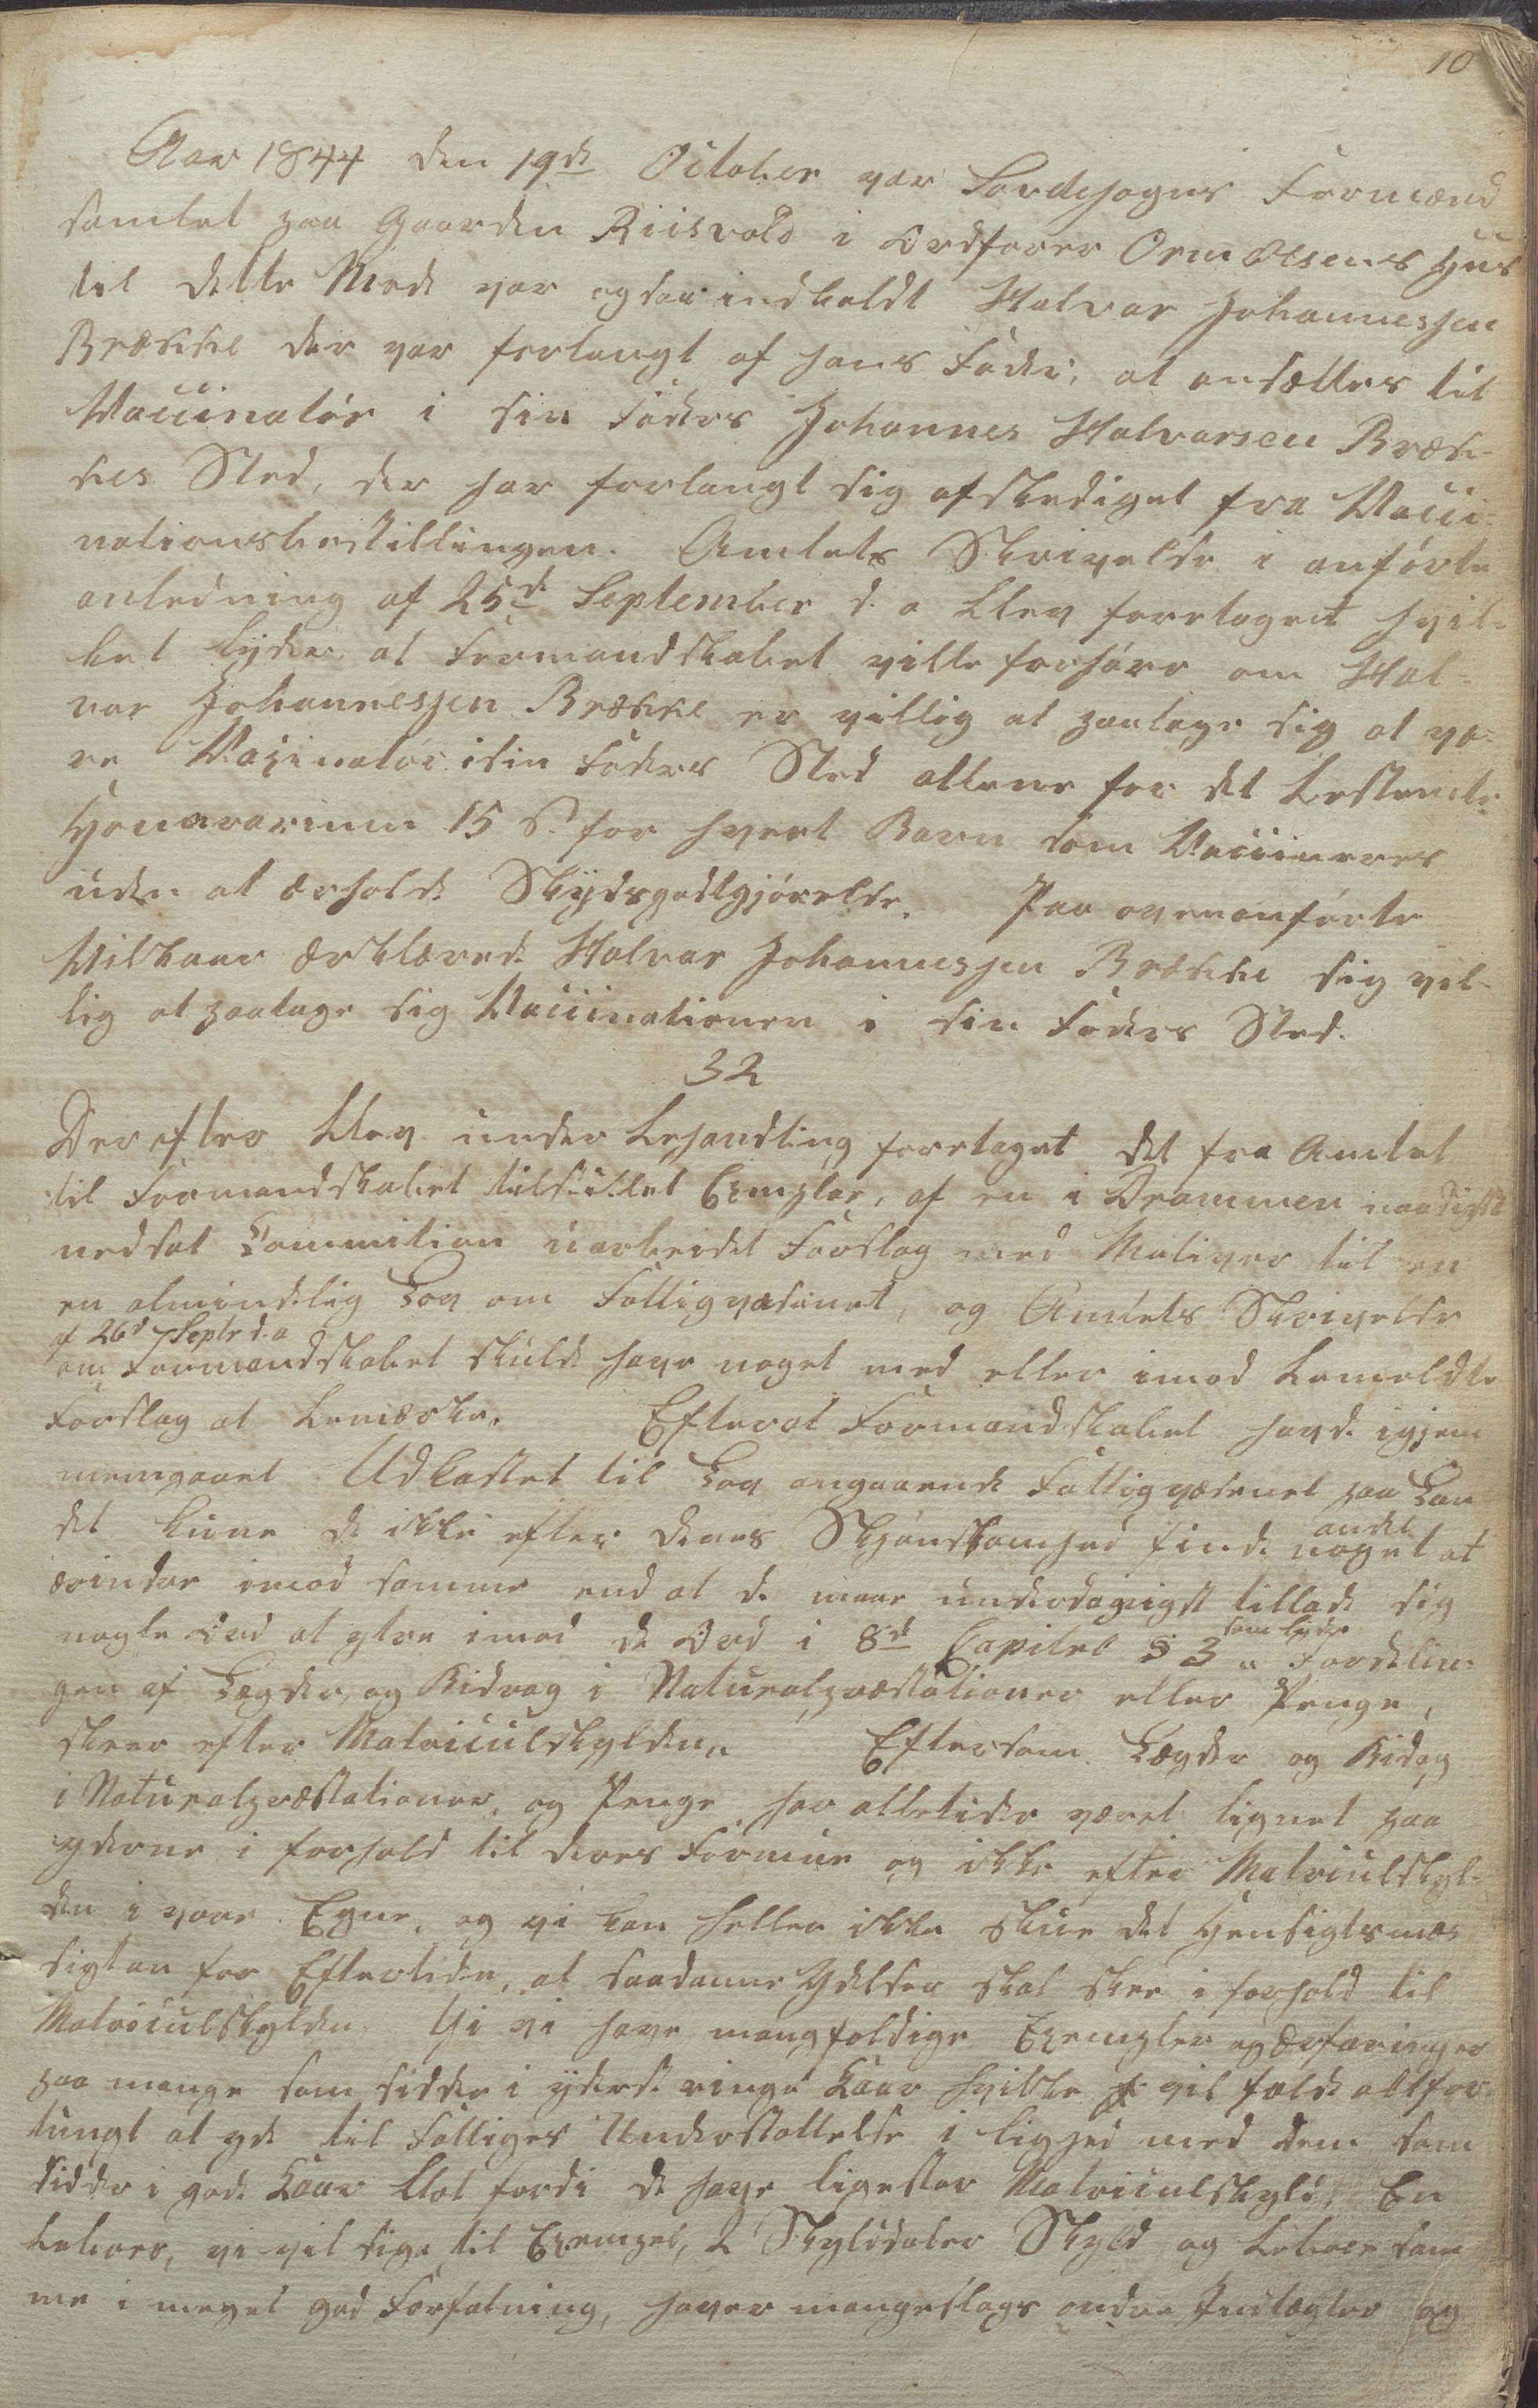 10
Aar 1844 den 19de October var Sandsogns Formænd
samlet paa Gaarden Riisvold i Ordfører Orm Olsens Huus
til dette Møde var ogsaa indkaldt Halvor Johannesjen
Brække der var forlangt af hans Fader, at ansættes til
Vaccinatør i sin Faders Johannes Halvorsen Bræk-
kes Sted, der har forlangt sig afskediget fra Vacci-
nationsbestillingen. Amtets Skrivelse i anførte
anledning af 25de September d. a blev foretaget hvil-
ket lyder, at Formandskabet ville forhøre om Hal-
vor Johannesjen Brække er villig at paatage sig at væ-
re Vaxinatør i sin Faders Sted allene for det bestemte
Honorarium 15 s. for hvert Barn som Vaccineres
uden at erholde Skydsgodtgjørelse. Paa ovenanførte
Vilkaar erklærede Halvor Johannesjen Brække sig vil-
lig at paatage sig Vaccinationen i sin Faders Sted.
32
Derefter blev under behandling foretaget det fra Amtet
til Formandskabet tilstillet Exmplar, af en i Drammen naadigst
nedsat Commition uarbeidet Forslag med Motiver til en
en almindelig Lov om Fattigvæsenet, og Amtets Skrivelse
af 26de Septr d. a
om Formandskabet skulde have noget med eller imod bemeldte
Forslag at bemærke. Efterat Formandskabet havde igjem
nemgaaet Udkastet til Lov angaaende Fattigvæsenet paa Lan
det kune de ikke efter deres Skjønsomhed finde noget andet at
erindre imod samme end at de maae underdanigst tillade sig
nogle Ord at ytre imod de Ord i 8de Capitel § 3 som lyder „ Fordelin-
gen af Lægder, og Bidrag i Naturalpræstationer eller Penge,
skeer efter Matriculskylden„ Eftersom Lægder og Bidag
i Naturalpræstationer, og Penge har alletider været lignet paa
yderne i forhold til deres Formue og ikke efter Matriculskyl-
den i vore Egne, og vi kan heller ikke skue det Hensigtsmæs
sigt an for Eftertiden, at saadanne Ydelser skal skee i forhold til
Matriculskylden. Thi vi have mangfoldige Exempler og Erfaringer
paa mange som sidder i yderst ringe Kaar hvilke vil falde altfor
tungt at yde til Fattiges Understøttelse i lighed med dem som
sidder i gode Kaar blot fordi de have ligestor Matriculskyld. En
beboer, vi vil sige til Exempel, 2 Skylddaler Skyld og beboer sam
me i meget god Forfatning, haver mangeslags andre Indtægter og